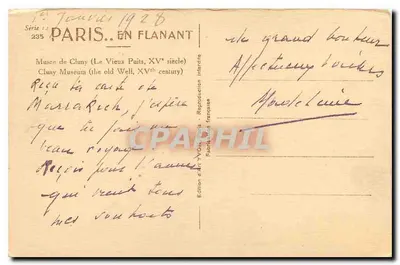 1er Janvier 1928
Série
235
PARIS.. EN FLANANT
Musée de Cluny (Le Vieux Puits, XVe siècle)
Cluny Museum (the old Well, XVth century)
Reçu ta carte de
Marrakech, j'espère
que tu fais un
beau voyage
Reçois pour l'année
qui vient tous
mes souhaits
de grand bonheur
Affectueux baisers
Madeleine
Reproduction interdite
Fabrication française
CPArama.com